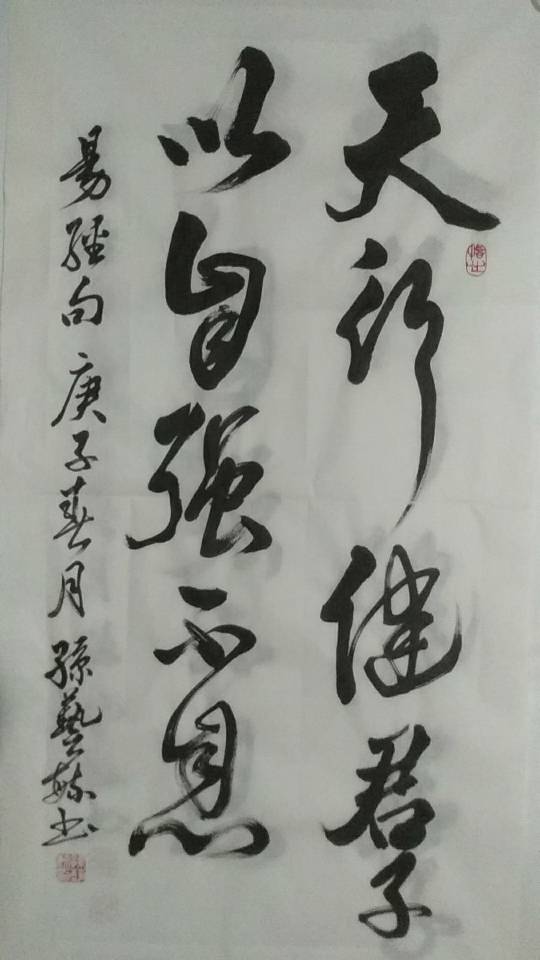 天行健君子
以自强不息
易經句 庚子春月 孫藝蘇书